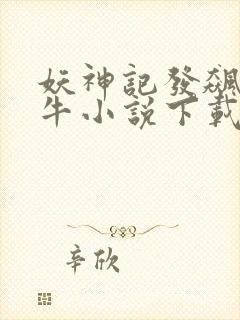 妖神記發飆
牛小說下載
辛欣